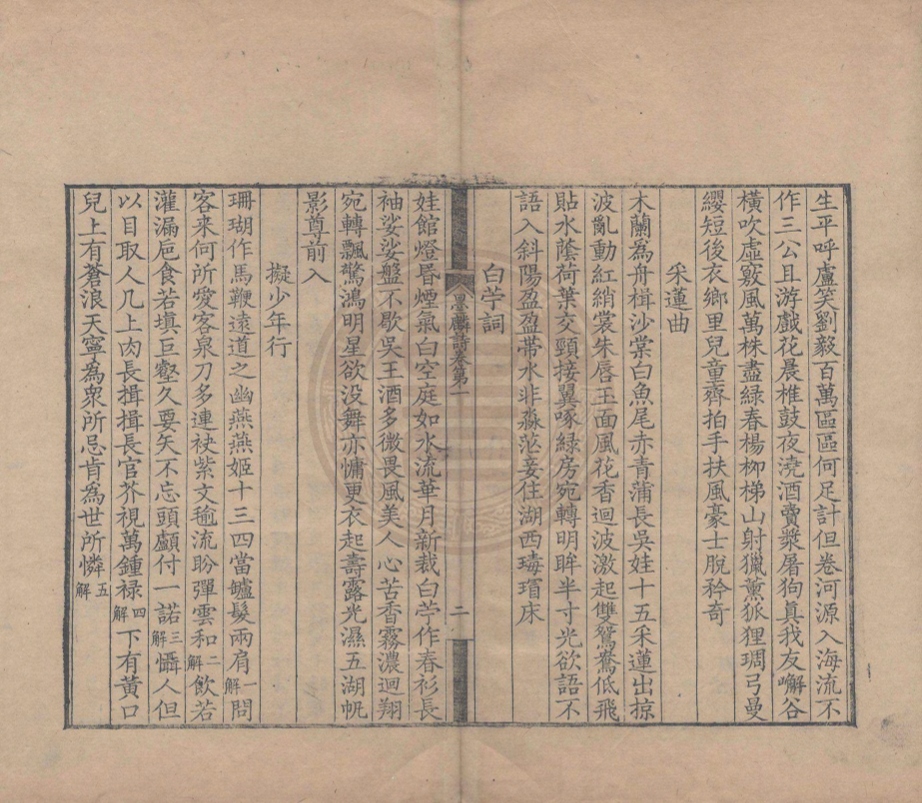 生平呼盧笑劉毅百萬區區何足計但卷河源入海流不
作三公且游戲花晨椎鼓夜澆酒賣漿屠狗真我友嶰谷
橫吹虛竅風萬株盡綠春楊柳梯山射獵薰狐狸琱弓曼
纓短後衣鄉里兒童齊拍手扶風豪士脫矜奇
采蓮曲
木蘭為舟楫沙棠白魚尾赤青蒲長吳娃十五采蓮出掠
波亂動紅綃裳朱唇玉面風花香迴波激起雙鴛鴦低飛
貼水蔭荷葉交頸接翼啄綠房宛轉明眸半寸光欲語不
語入斜陽盈盈帶水非淼茫妾住湖西瑇瑁床
白苧詞
墨麟詩卷第一
二
娃館燈昬煙氣白空庭如水流華月新裁白苧作春衫長
袖娑娑盤不歇吳王酒多微畏風美人心苦香霧濃迴翔
宛轉飄驚鴻明星欲没舞亦慵更衣起壽露光濕五湖帆
影尊前入
擬少年行
珊瑚作馬鞭遠道之幽燕燕姬十三四當罏髮兩肩一解問
客來何所愛客泉刀多連袂紫文毺流盼彈雲和二解飲若
灌漏巵食若填巨壑久要矢不忘頭顱付一諾三解懾人但
以目取人几上肉長揖揖長官芥視萬鍾禄四解下有黃口
兒上有蒼浪天寧為衆所忌肯為世所憐五解